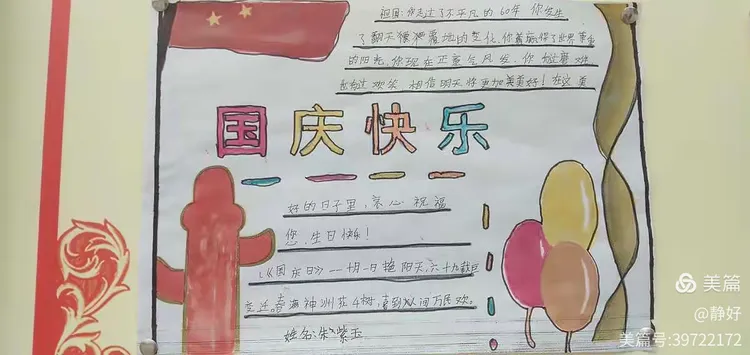 祖国：你走过了不平凡的60年 你发生
了翻天覆地的变化，你着赢得了世界
的阳光，你现在正意气风发，你
欢笑 相信明天你更加美美好！在这 美
国庆快乐
好的日子里，衷心 祝福
您，生日快乐！
《国庆日》一十月一日艳阳天，六十九载
变迁 春满神州花4树，喜到人间万民欢。
姓名：朱紫玉
美篇
@静好
美篇号:39722172